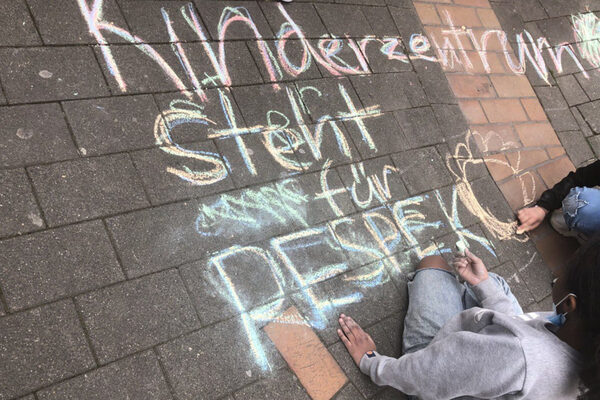 Kinderzentrum
steht
für
RESPEK